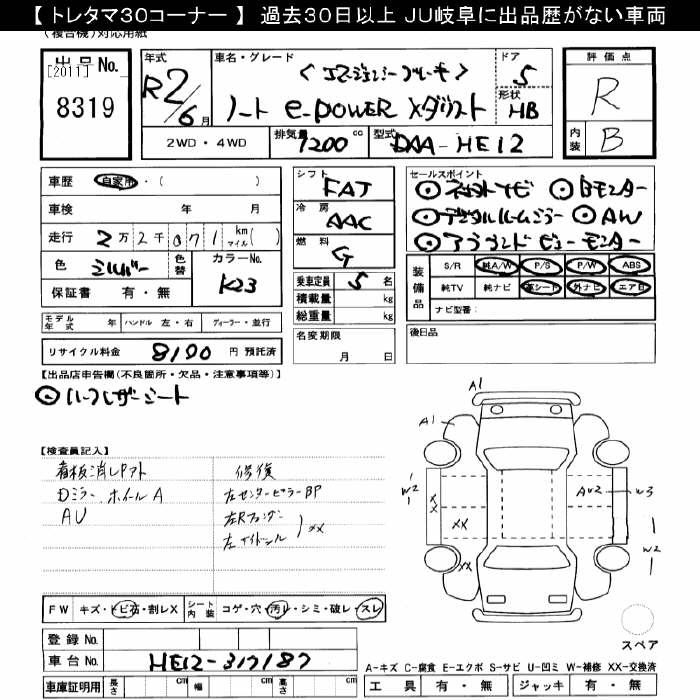 【 トレタマ30コーナー 】 過去30日以上 JU岐阜に出品歴がない車両
(複合機)対応用紙
出品No.
[2011]
8319
年式
R2/6月
車名・グレード
<エマージェンシーブレーキ>
ノート e-POWER Xメダリスト
ドア
5
形状
HB
評価点
R
内装
B
2WD・4WD
排気量
1200 cc
型式
DAA-HE12
車歴
自家用・( )
車検 年 月
走行 2万2千071 km マイル( )
色
シルバー
色替
カラーNo.
K23
保証書 有・無
シフト
FAT
冷房
AAC
燃料
G
乗車定員 5 名
積載量 kg
総重量 kg
セールスポイント
◎ ネットナビ ◎ Bモニター
◎ デジタルルームミラー ◎ AW
◎ アラウンドビューモニター
装備品
S/R 純A/W P/S P/W ABS
純TV 純ナビ 革シート 外ナビ エアB
ナビ型番:
モデル年式 年 ハンドル 左・右 ディーラー・並行
名変期限
月 日
後日品
リサイクル料金 8100 円 預託済
【出品店申告欄(不良箇所・欠品・注意事項等)】
◎ ハーフレザーシート
【検査員記入】
看板消しPアト
Dミラー ホイールA
AU
修復
左センターピラーBP
左Rフェンダー
左サイドシル
XX
A1
A1
W2
XX
XX
XX
AU2
W3
W2
スペア
FW キズ・トビ石・割レX
シート内装 コゲ・穴・汚レ・シミ・破レ・スレ
登録No.
車台No. HE12-317187
車庫証明用 長さ cm 幅 cm 高さ cm
A-キズ C-腐食 E-エクボ S-サビ U-凹ミ W-補修 XX-交換済
工具 有・無 ジャッキ 有・無